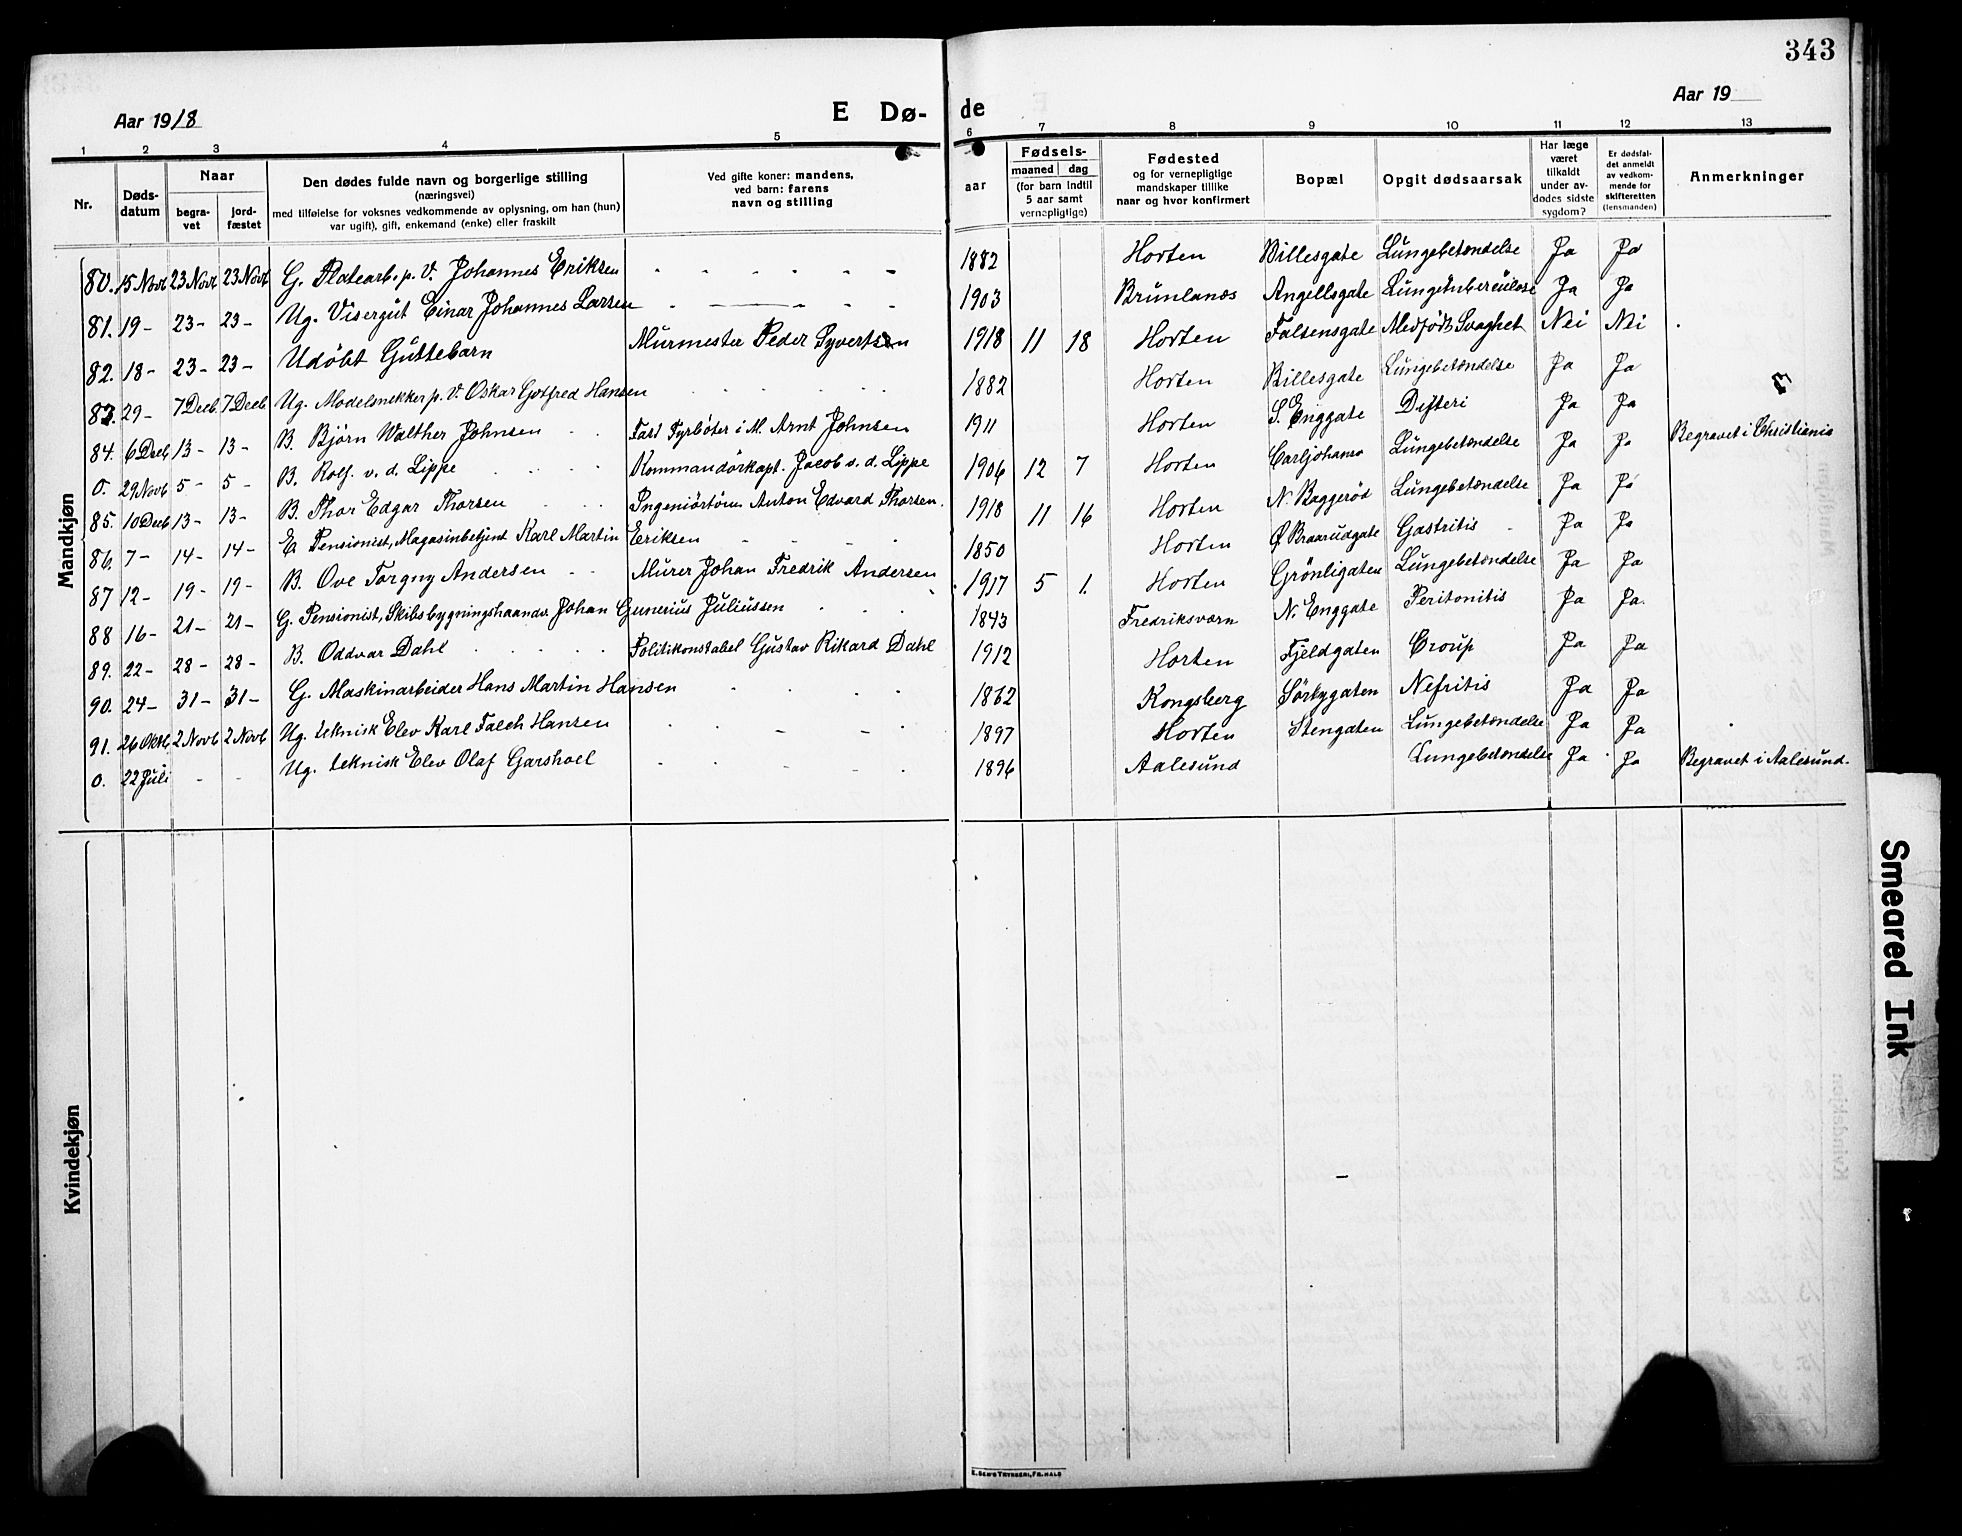 343
Aar 1918
E Dø-
de
Aar 19
1 2 3 4 5 6 7 8 9 10 11 12 13
Nr.
Døds-
datum
Naar
begra-
vet
jord-
fæstet
Den dødes fulde navn og borgerlige stilling
(næringsvei)
med tilføielse for voksnes vedkommende av oplysning, om han (hun)
var ugift), gift, enkemand (enke) eller fraskilt
Ved gifte koner: mandens,
ved barn: farens
navn og stilling
aar
Fødsels-
maaned dag
(for barn indtil
5 aar samt
vernepligtige)
Fødested
og for vernepligtige
mandskaper tillike
naar og hvor konfirmert
Bopæl
Opgit dødsaarsak
Har læge
været
tilkaldt
under av-
dødes sidste
sygdom?
Er dødsfal-
det anmeldt
av vedkom-
mende for
skifteretten
(lensmanden)
Anmerkninger
Mandkjøn
80. 15 Novb 23 Novb 23 Novb G. Platearb. p. V. Johannes Eriksen - - - - - - 1882 Horten Billesgate Lungebetændelse Ja Ja
81. 19- 23- 23- Ug. Visergut Einar Johannes Larsen - - - - - 1903 Brunlanes Angellsgate Lungetuberculose Ja Ja
82. 18- 23- 23- Udöbt Guttebarn Murmester Peder Syvertsen 1918 11 18 Horten Falsensgate Medfödt Svaghet Nei Nei
83. 29- 7 Decb. 7 Decb. Ug. Modelsnekker p. V. Oskar Gotfred Hansen 1882 Horten Billesgate Lungebetændelse Ja Ja
84. 6 Decb. 13- 13- B. Björn Walther Johnsen - - Fast Fyrböter i M. Arnt Johnsen 1911 Horten S. Enggate Difteri Ja Ja
0. 29 Novb 5- 5- B. Rolf. v. d. Lippe Kommandörkapt. Jacob v. d. Lippe 1906 12 7 Horten Carljohans Lungebetændelse Ja Ja Begravet i Christiania
85. 10 Decb 13- 13- B. Thor Edgar Thorsen Anton Edvard Thorsen. 1918 11 16 Horten N. Baggeröd Lungebetændelse Ja Ja
86. 7- 14- 14- E. Pensionist, Magasinbetjent Karl Martin Eriksen - - - - 1850 Horten Ø Braarudgate Gastritis - Ja Ja
87 12- 19- 19- B. Ove Torgny Andersen - - Murer Johan Fredrik Andersen 1917 5 1. Horten Grönligaten Lungebetændelse Ja Ja
88 16- 21- 21- G. Pensionist, Skibsbygningshaandv. Johan Gunerius Juliussen 1843 Fredriksværn N. Enggate Peritonitis Ja Ja.
89. 22- 28- 28- B. Oddvar Dahl Politikonstabel Gustav Rikard Dahl 1912 Horten Fjeldgaten Croup Ja Ja
90. 24- 31- 31- G. Maskinarbeider Hans Martin Hansen 1862 Kongsberg Sörbygaten Nefritis Ja Ja
91. 26 Oktb. 2 Novb 2 Novb Ug. teknisk Elev Karl Falch Hansen 1897 Horten Stengaten Lungebetændelse Ja Ja
0. 22 Juli - - Ug. teknisk Elev Olaf Garshoel 1896 Aalesund Lungebetændelse Ja Ja Begravet i Aalesund.
Kvindekjøn
Smeared Ink